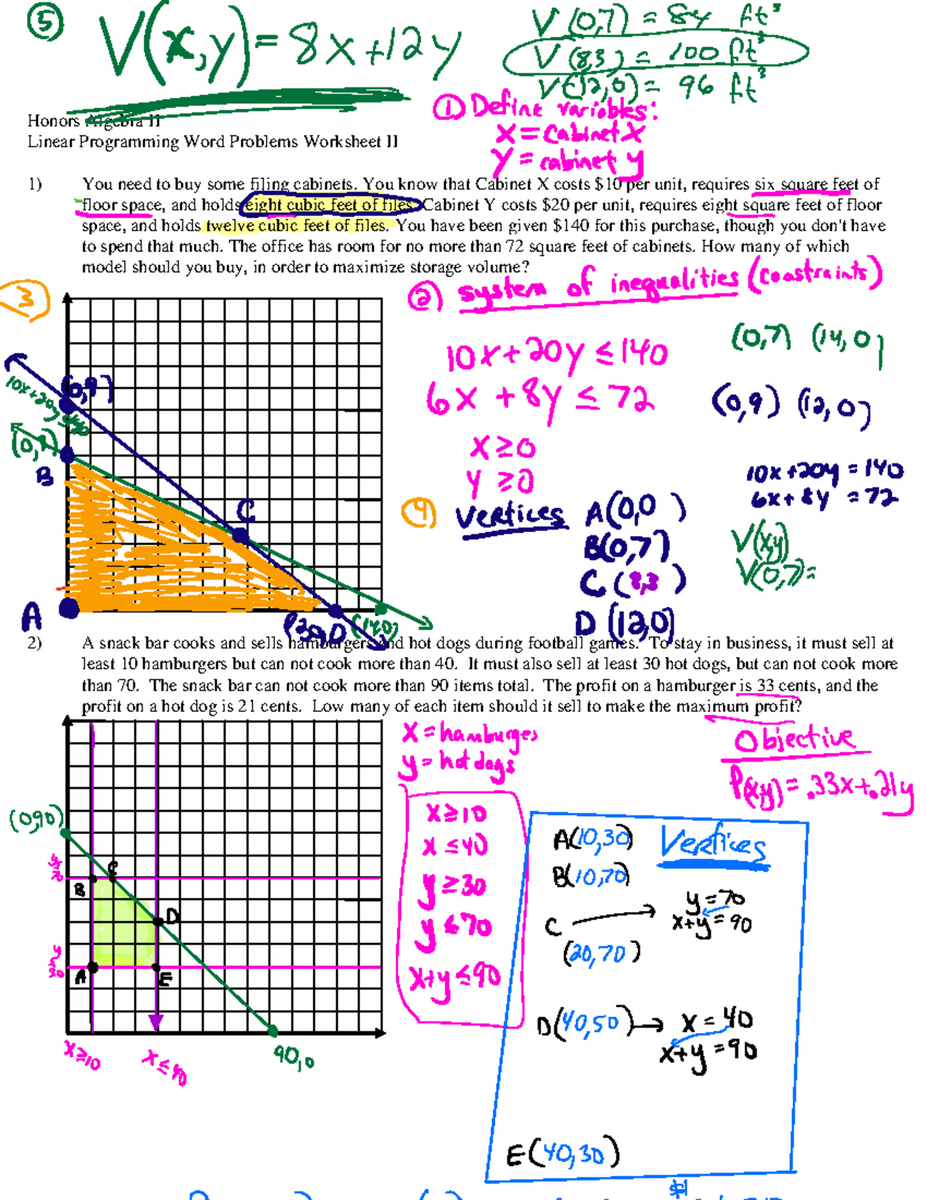 ⑤ V(x,y) = 8x+12y
V(0,7) = 84 ft³
V(8,3) = 100 ft³
V(12,0) = 96 ft³
Honors Algebra II
Linear Programming Word Problems Worksheet II
① Define variables:
X = Cabinet X
Y = cabinet y
1) You need to buy some filing cabinets. You know that Cabinet X costs $10 per unit, requires six square feet of
floor space, and holds eight cubic feet of files. Cabinet Y costs $20 per unit, requires eight square feet of floor
space, and holds twelve cubic feet of files. You have been given $140 for this purchase, though you don't have
to spend that much. The office has room for no more than 72 square feet of cabinets. How many of which
model should you buy, in order to maximize storage volume?
② system of inequalities (constraints)
10x+20y ≤ 140
6x + 8y ≤ 72
X ≥ 0
Y ≥ 0
(0,7) (14,0)
(0,9) (12,0)
10x+20y = 140
6x+8y = 72
V(x,y)
V(0,7) =
③
(0,9)
(0,7)
B
C
A
D
(14,0)
④ Vertices A(0,0)
B(0,7)
C(8,3)
D(12,0)
2) A snack bar cooks and sells hamburgers and hot dogs during football games. To stay in business, it must sell at
least 10 hamburgers but can not cook more than 40. It must also sell at least 30 hot dogs, but can not cook more
than 70. The snack bar can not cook more than 90 items total. The profit on a hamburger is 33 cents, and the
profit on a hot dog is 21 cents. Low many of each item should it sell to make the maximum profit?
X = hamburges
y = hot dogs
Objective
P(x,y) = .33x+.21y
X ≥ 10
X ≤ 40
y ≥ 30
y ≤ 70
x+y ≤ 90
(0,90)
B
C
D
A
E
X ≥ 10
X ≤ 40
90,0
Vertices
A(10,30)
B(10,70)
C → y = 70
x+y = 90
(20,70)
D(40,50) → x = 40
x+y = 90
E(40,30)